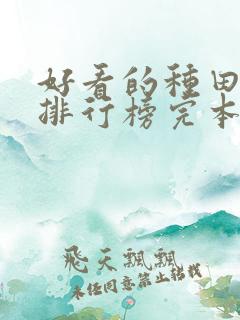 好看的種田
排行榜完本
飛天飄飄
未任同意禁止轉載